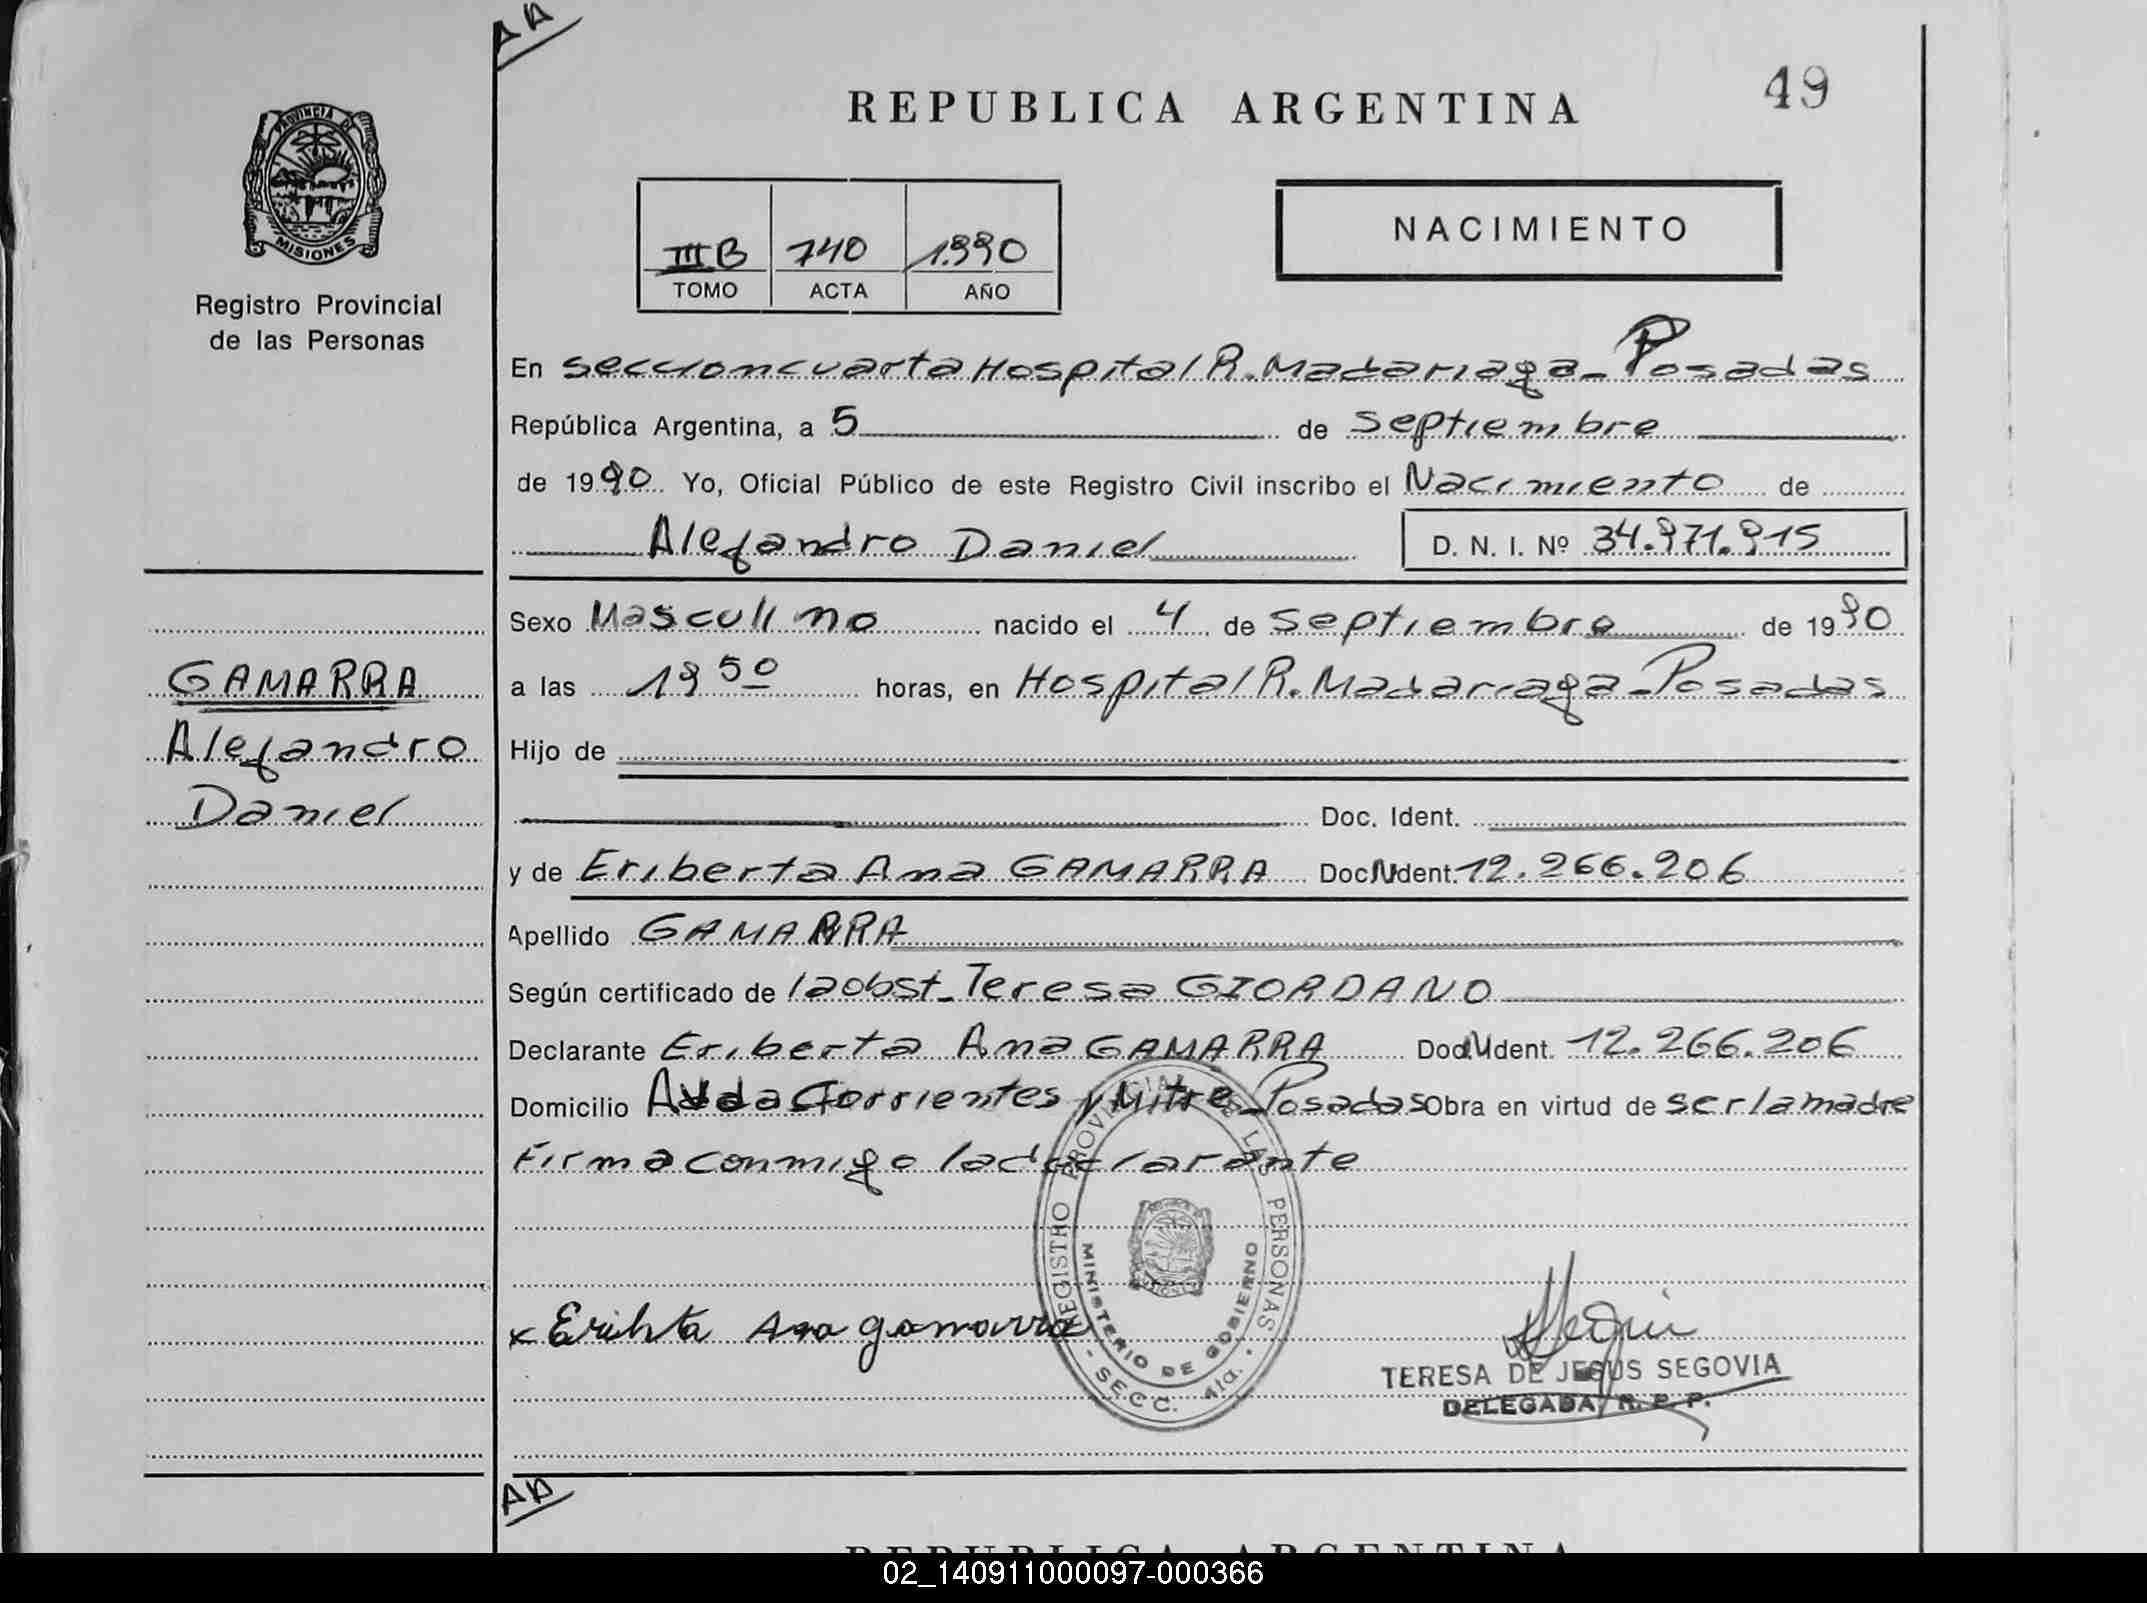 AA
REPUBLICA ARGENTINA
49
PROVINCIA DE
MISIONES
Registro Provincial
de las Personas
III B 740 1.990
TOMO ACTA AÑO
NACIMIENTO
En seccion cuarta Hospital R. Madariaga - Posadas
República Argentina, a 5 de septiembre
de 1990 Yo, Oficial Público de este Registro Civil inscribo el Nacimiento de
Alejandro Daniel D. N. I. Nº 34.971.915
Sexo Masculino nacido el 4 de septiembre de 1990
GAMARRA
a las 19 50 horas, en Hospital R. Madariaga - Posadas
Alejandro
Hijo de
Daniel
Doc. Ident.
y de Eriberta Ana GAMARRA Doc. Ident. 12.266.206
Apellido GAMARRA
Según certificado de la obst_ Teresa GIORDANO
Declarante Eriberta Ana GAMARRA Doc. Ident. 12.266.206
Domicilio Avda Corrientes y Mitre - Posadas Obra en virtud de ser la madre
Firma conmigo la declarante
REGISTRO PROVINCIAL DE LAS PERSONAS
MINISTERIO DE GOBIERNO
- SECC. 4ta. -
x Eribta Ana gamarra
TERESA DE JESUS SEGOVIA
DELEGADA R. P. P.
AA
REPUBLICA ARGENTINA
02_140911000097-000366